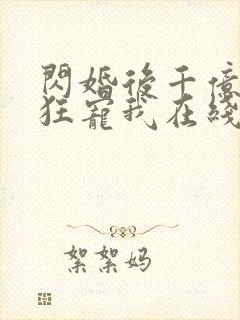 閃婚後千億
狂寵我在綫
絮絮妈